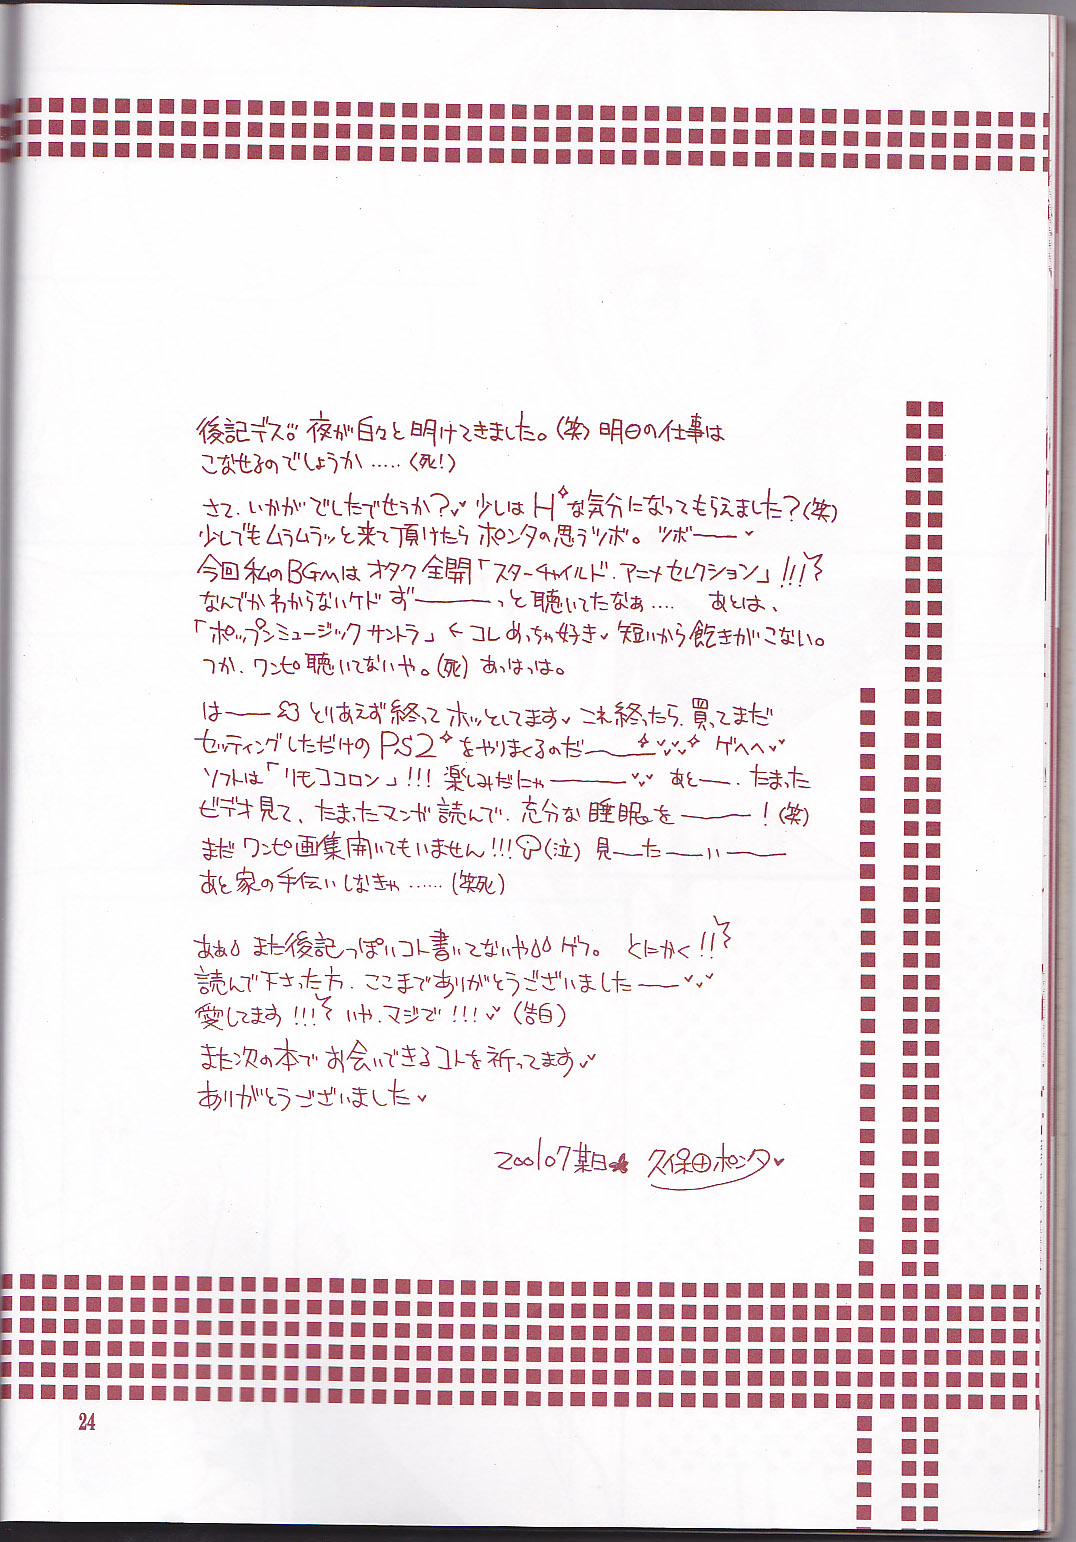 後記デス。夜が白々と明けてきました。(笑) 明日の仕事は
こなせるのでしょうか ..... (死!)
さて、いかがでしたでせうか?♥ 少しは H✧な気分になってもらえました?(笑)
少しでもムラムラッと来て頂けたら ポンタの思うツボ。ツボ——♥
今回 私のBGMは オタク 全開「スターチャイルド・アニメセレクション」!!!
なんでかわからないケド ず———っと聴いてたなぁ.... あとは、
「ポップンミュージック サントラ」← コレめっちゃ好き♥ 短いから飽きがこない。
つか、ワンピ聴いてないや。(死) あっはっは。
は—— とりあえず終ってホッとしてます♥ これ終ったら、買ってまだ
セッティングしただけの PS2✧をやりまくるのだ——✧♥♥✧ ゲヘヘ♥
ソフトは「リモココロン」!!! 楽しみだにゃ———♥♥ あと—、たまった
ビデオ見て、たまったマンガ読んで、充分な睡眠を———!(笑)
まだワンピ画集開いてもいません!!!(泣) 見—た—い——
あと家の手伝いしなきゃ ...... (笑死)
あぁ また後記っぽいコト書いてないや ゲフ。 とにかく!!
読んで下さった方、ここまでありがとうございました——♥♥
愛してます!!! いや、マジで!!!♥ (告白)
また次の本で お会いできるコトを祈ってます♥
ありがとうございました♥
200107某日★ 久保田ポンタ♥
24